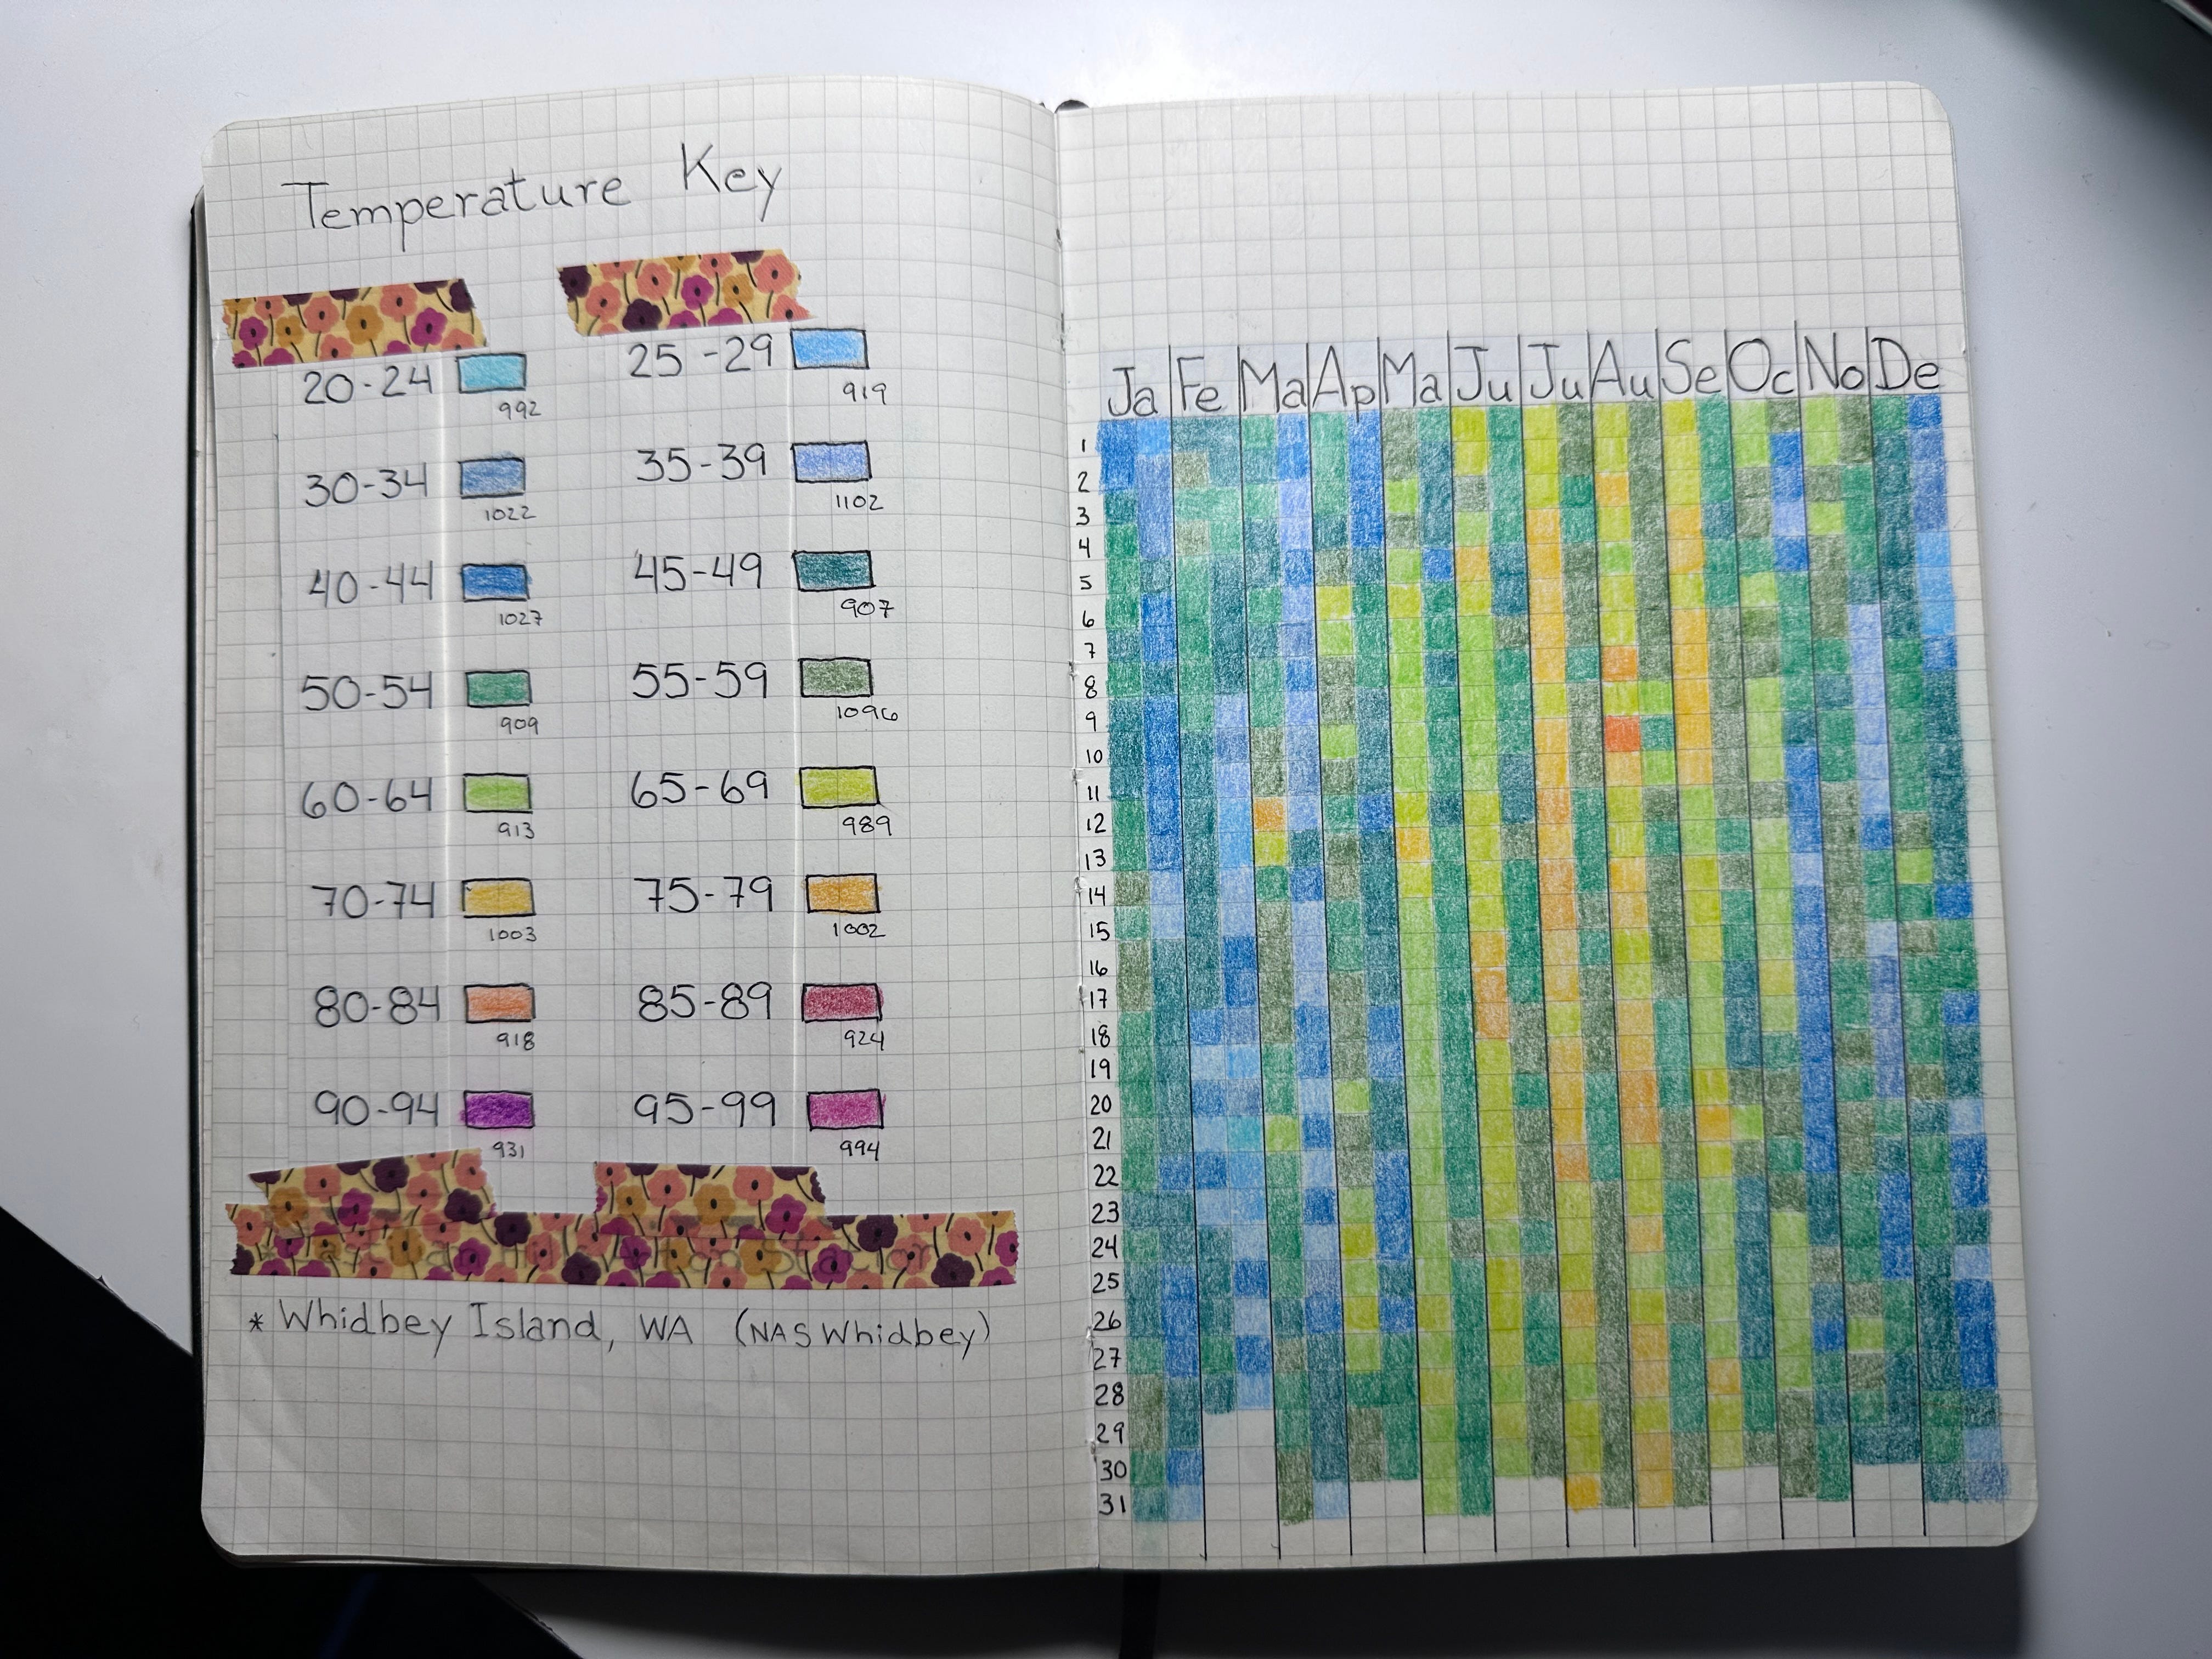 Temperature Key
20-24 25-29
992 919
30-34 35-39
1022 1102
40-44 45-49
1027 907
50-54 55-59
909 1096
60-64 65-69
913 989
70-74 75-79
1003 1002
80-84 85-89
918 924
90-94 95-99
931 994
* Whidbey Island, WA (NAS Whidbey)
Ja Fe Ma Ap Ma Ju Ju Au Se Oc No De
1
2
3
4
5
6
7
8
9
10
11
12
13
14
15
16
17
18
19
20
21
22
23
24
25
26
27
28
29
30
31